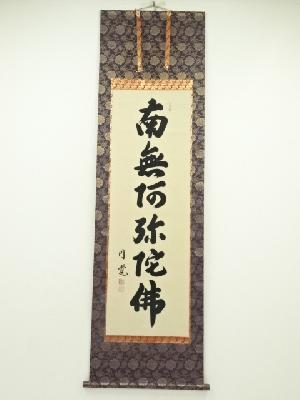 南無阿弥陀佛
円覚